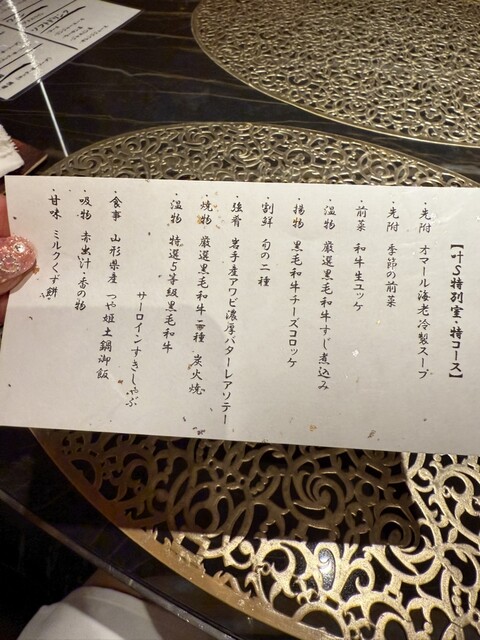 【叶S特別室・特コース】
・先附 オマール海老冷製スープ
・先附 季節の前菜
・前菜 和牛生ユッケ
・温物 厳選黒毛和牛すじ煮込み
・揚物 黒毛和牛チーズコロッケ
・割鮮 旬の二種
・強肴 岩手産アワビ濃厚バターレアソテー
・焼物 厳選黒毛和牛二種 炭火焼
・温物 特選5等級黒毛和牛
サーロインすきしゃぶ
・食事 山形県産 つや姫土鍋御飯
・吸物 赤出汁・香の物
・甘味 ミルクくず餅